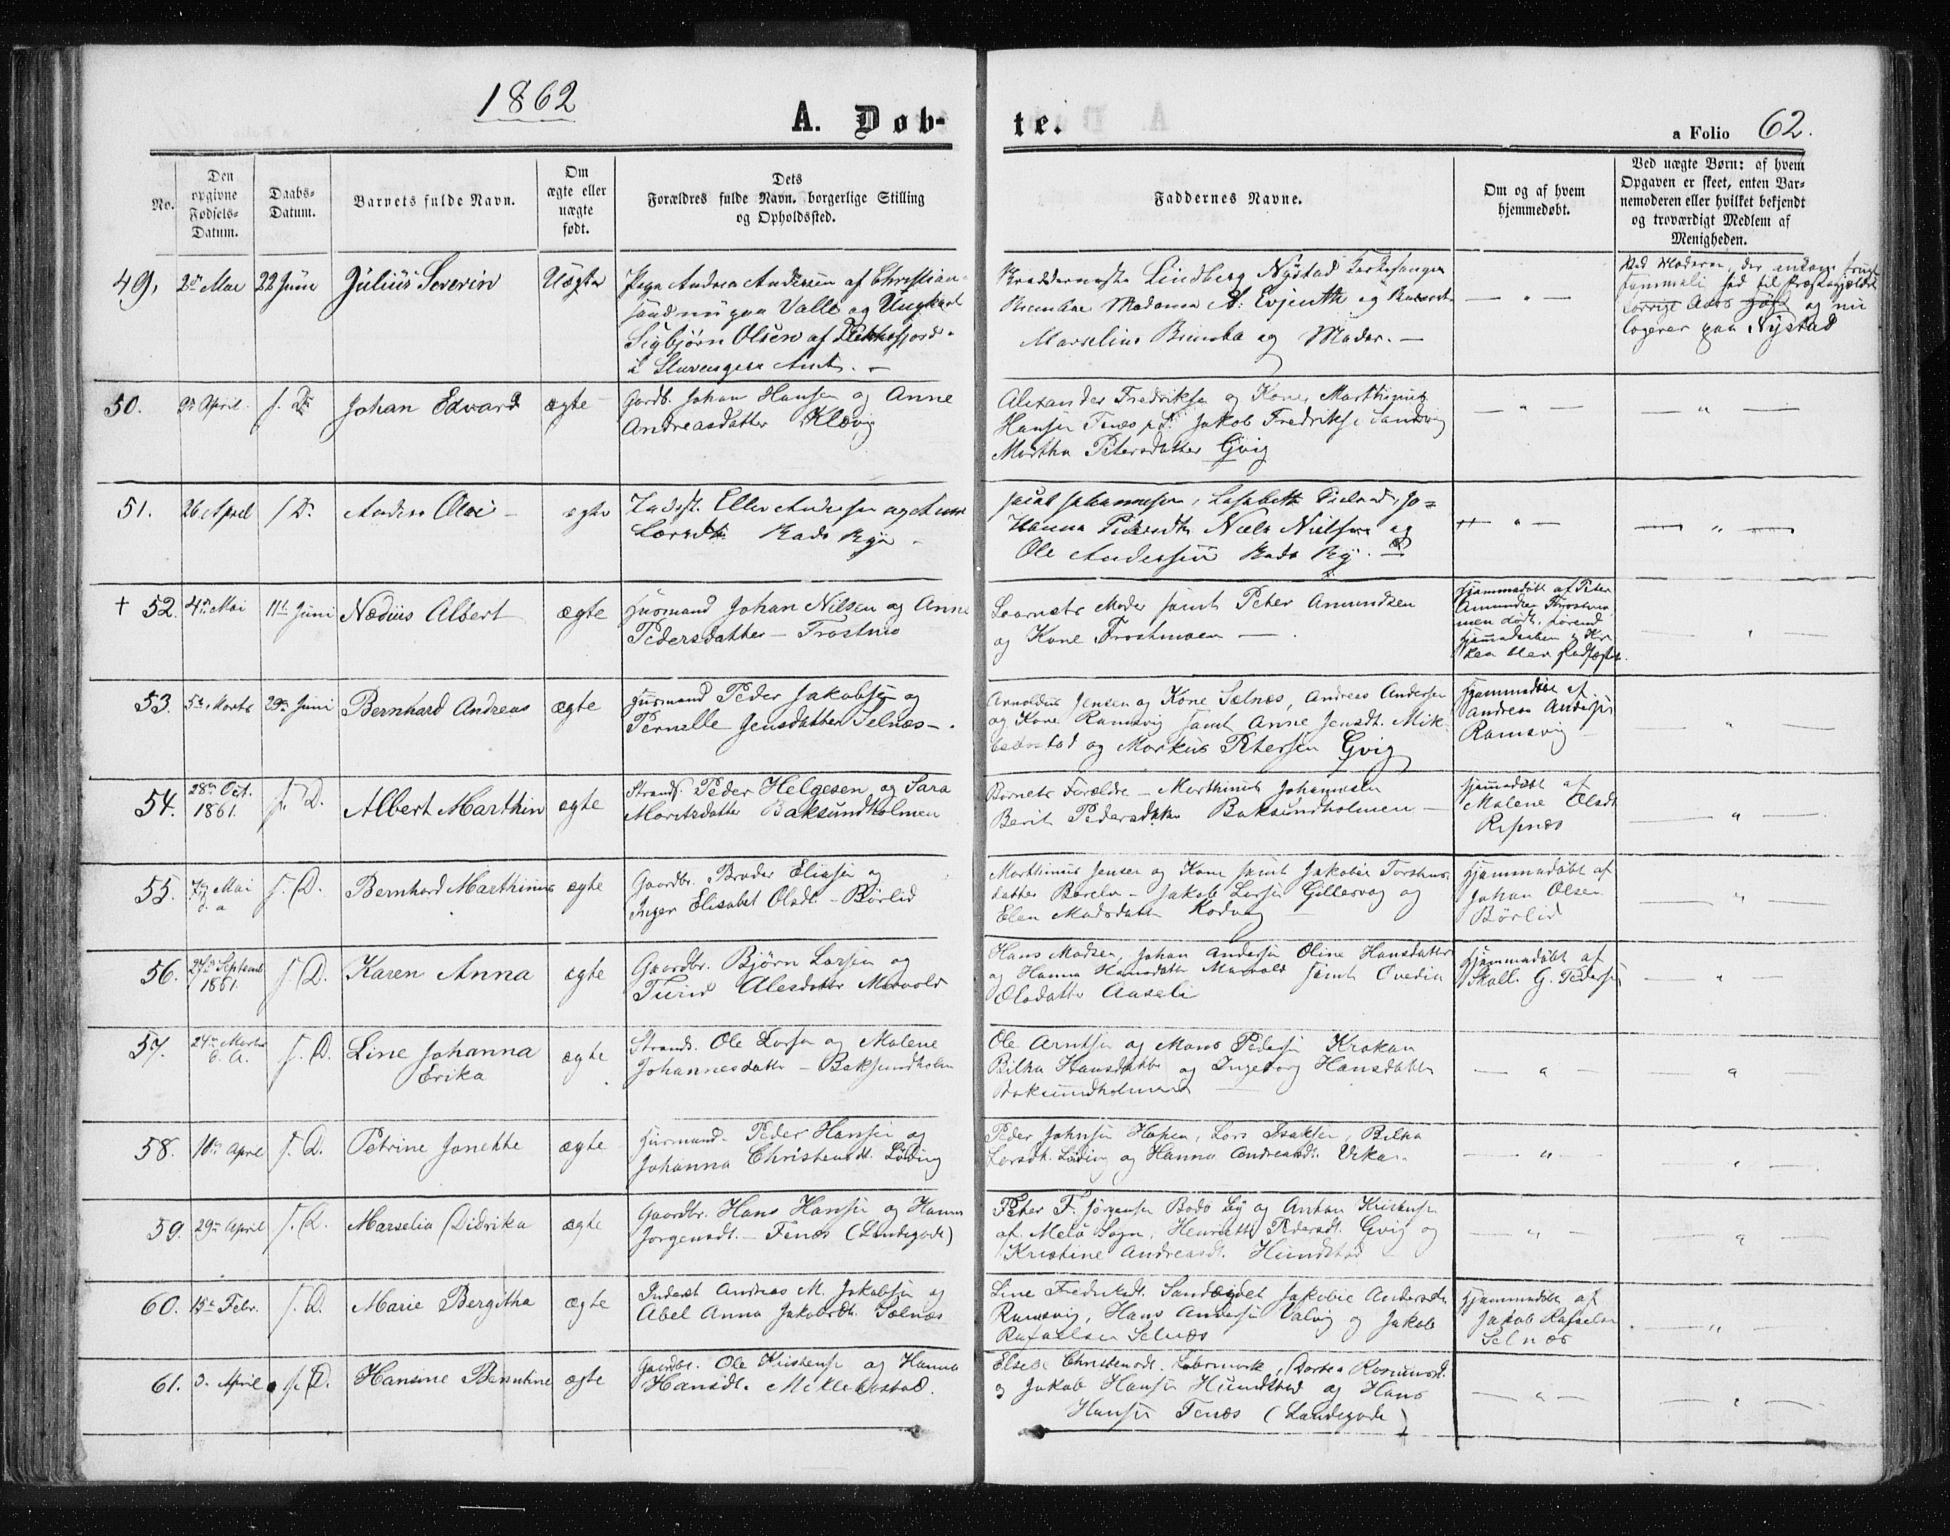 1862
A. Døb-
te.
a Folio 62.
No.
Den
opgivne
Fødsels-
Datum.
Daabs-
Datum.
Barnets fulde Navn.
Om
ægte eller
uægte
født.
Dets
Forældres fulde Navn, borgerlige Stilling
og Opholdssted.
Faddernes Navne.
Om og af hvem
hjemmedøbt.
Ved uægte Børn: af hvem
Opgaven er skeet, enten Bar-
nemoderen eller hvilket bekjendt
og troværdigt Medlem af
Menigheden.
49, 2den Mai 22 Juni Julius Severin Uægte
Pige Andrea Andersen af Christian-
sund nu paa Valle og Ungkarl
Sigbjørn Olsen af
i Stavangers Amt. -
Lindberg Nystad Kirkesanger
Madama A. Evjenth og
Marselius og Moder. -
- " -
Ved Moderen, der
til Præstegjældet
og nu
logerer paa Nystad
50. April s. D. Johan Edvard ægte
Gardb. Johan Hansen og Anne
Andreasdatter Kløvig
Alexander Fredriksen og Kone Marthinus
Hansen Fenes Jakob Fredriks Sandvig
Martha Petersdatter Gvig
- " -
- " -
51. 26 April s D. Anders Olai - ægte
Indst. Eller Andersen og Anne
Larsdt. Bodø By -
Jacob Johannesen, Lisabeth Jo-
Hanna Pedersdtr Niels Nielsen og
Ole Andersen Bodø By. -
- " -
- " -
+ 52. 4de Mai 11te Juni Nædius Albert ægte
Husmand Johan Nilsen og Anne
Pedersdatter - Trostmo
Barnets Moder samt Peter Amundsen
og Kone Trostmoen - .
Hjemmedøbt af Peter
Amundsen
- "
53. 5te Marts 29de Juni Bernhard Andreas ægte
Husmand Peder Jakobsen og
Pernelle Jensdatter Selnæs - .
Arnoldus Jensen og Kone Selnæs, Andreas Andersen
og Kone Ramsvig samt Anne Jensdt. Mik-
og Markus Petersen Gvig
Hjemmedøbt af
Andreas Andersen
Ramsvig
- " -
54. 28de Oct.
1861. s. D. Albert Marthin ægte
Strands. Peder Helgesen og Sara
Moritsdatter Baksundholmen
Barnets Forældre - Marthinus Johannesen
Berit Pedersdatter Baksundholmen -
Hjemmedøbt af
Malene Olsdt
Ripnæs
- " -
55. Mai
s. a s. D. Bernhard Marthinus ægte
Gaardbr. Broder Eliasen og
Inger Elisabet Olsdt. - Børlid
Marthinus Jensen og Kone samt Jakobie Torstens-
datter - Jakob Larsen Gillesvag og
Elen Madsdatter Kodvag
Hjemmedøbt af
Johan Olsen
Børlid
- " -
56. 27de Septemb
1861. s. D. Karen Anna ægte
Gaardbr. Bjørn Larsen og
Turine Alesdatter Mervold
Hans Madsen, Johan Andersen Oline Hansdatter
og Hanna Hansdatter samt Ovedia
Olsdatter Aaseli
Hjemmedøbt af
Skoll. G. Pedersen
- " -
57. 24de Marts
s. A. s. D. Line Johanna
Erika ægte
Strands. Ole Larsen og Malene
Johannesdatter - Baksundholm
Ole Arntsen og Mons Pedersen Krokan
Bilha Hansdatter og Ingeborg Hansdatter
Baksundholmen
- " -
- " -
58. 10de April s. D. Petrine Jonette ægte
Husmand. Peder Hansen og
Johanna Christensdt. Løding
Peder Johnsen Hopen, Lars Isaksen, Bilha
Larsdt. Løding og Hanna Andreasdt.
- " -
- " -
59. 29de April s. D. Marselia Didrika ægte
Gaardbr. Hans Hansen og Hanna
Jørgensdt. - Fenæs (Landegode)
Peter F. Jørgensen Bodø By og Anton Kristensen
af Melø Sogn, Henriette Pedersdt. Gvig og
Kristine Andreasdt. Hundstad
- " -
- " -
60. 15de Febr. s. D. Marie Bergitha ægte
Inderst Andreas M. Jakobsen og
Abel Anna Jakobsdt. Selnæs
Line Fredriksdt. Jakobie Andersdtr
Ramsvig, Hans Andersen Valvig og Jakob
Rafaelsen Selnæs
Hjemmedøbt af
Jakob Rafaelsen
Selnæs
- " -
61. 3. April s. D. Hansine Berntine ægte
Gaardbr. Ole Kristensen og Hanna
Hansdt. Miklebostad.
Elsebe Christensdt. Løbsmark, Dortea Rasmusdt.
og Jakob Hansen Hundstad og Hans
Hansen Fenæs (Landegode)
- " -
- " -